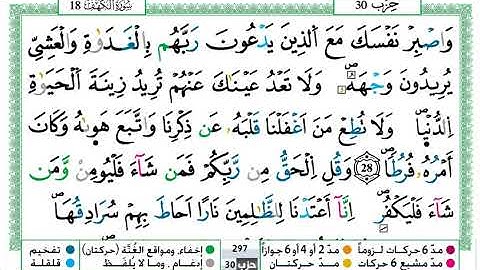 سُورَةُ الكَهْفِ 18 حِزْبُ 30
وَاصْبِرْ نَفْسَكَ مَعَ اَ۬لذِينَ يَدْعُونَ رَبَّهُم بِالْغَدَوٰةِ وَالْعَشِيِّ
يُرِيدُونَ وَجْهَهُۥۖ وَلَا تَعْدُ عَيْنَٰكَ عَنْهُمْ تُرِيدُ زِينَةَ اَ۬لْحَيَوٰةِ
اِ۬لدُّنْي۪اۖ وَلَا تُطِعْ مَنَ اَغْفَلْنَا قَلْبَهُۥ عَن ذِكْرِنَا وَاتَّبَعَ هَو۪ىٰهُ وَكَانَ
أَمْرُهُۥ فُرُطاٗۖ 28 وَقُلِ اِ۬لْحَقُّ مِن رَّبِّكُمْ فَمَن شَآءَ فَلْيُومِنۖ وَمَن
شَآءَ فَلْيَكْفُرِۖ اِنَّآ أَعْتَدْنَا لِلظَّٰلِمِينَ نَاراً اَحَاطَ بِهِمْ سُرَادِقُهَاۖ
مدّ 6 حركات لزوماً مدّ 2 أو 4 أو 6 جوازاً 297 إخفاء، ومواقع الغُنَّة (حركتان) تفخيم
مدّ مشبع 6 حركات مدّ حركتان حزب 30 إدغام، وما لا يُلفَظ قلقلة